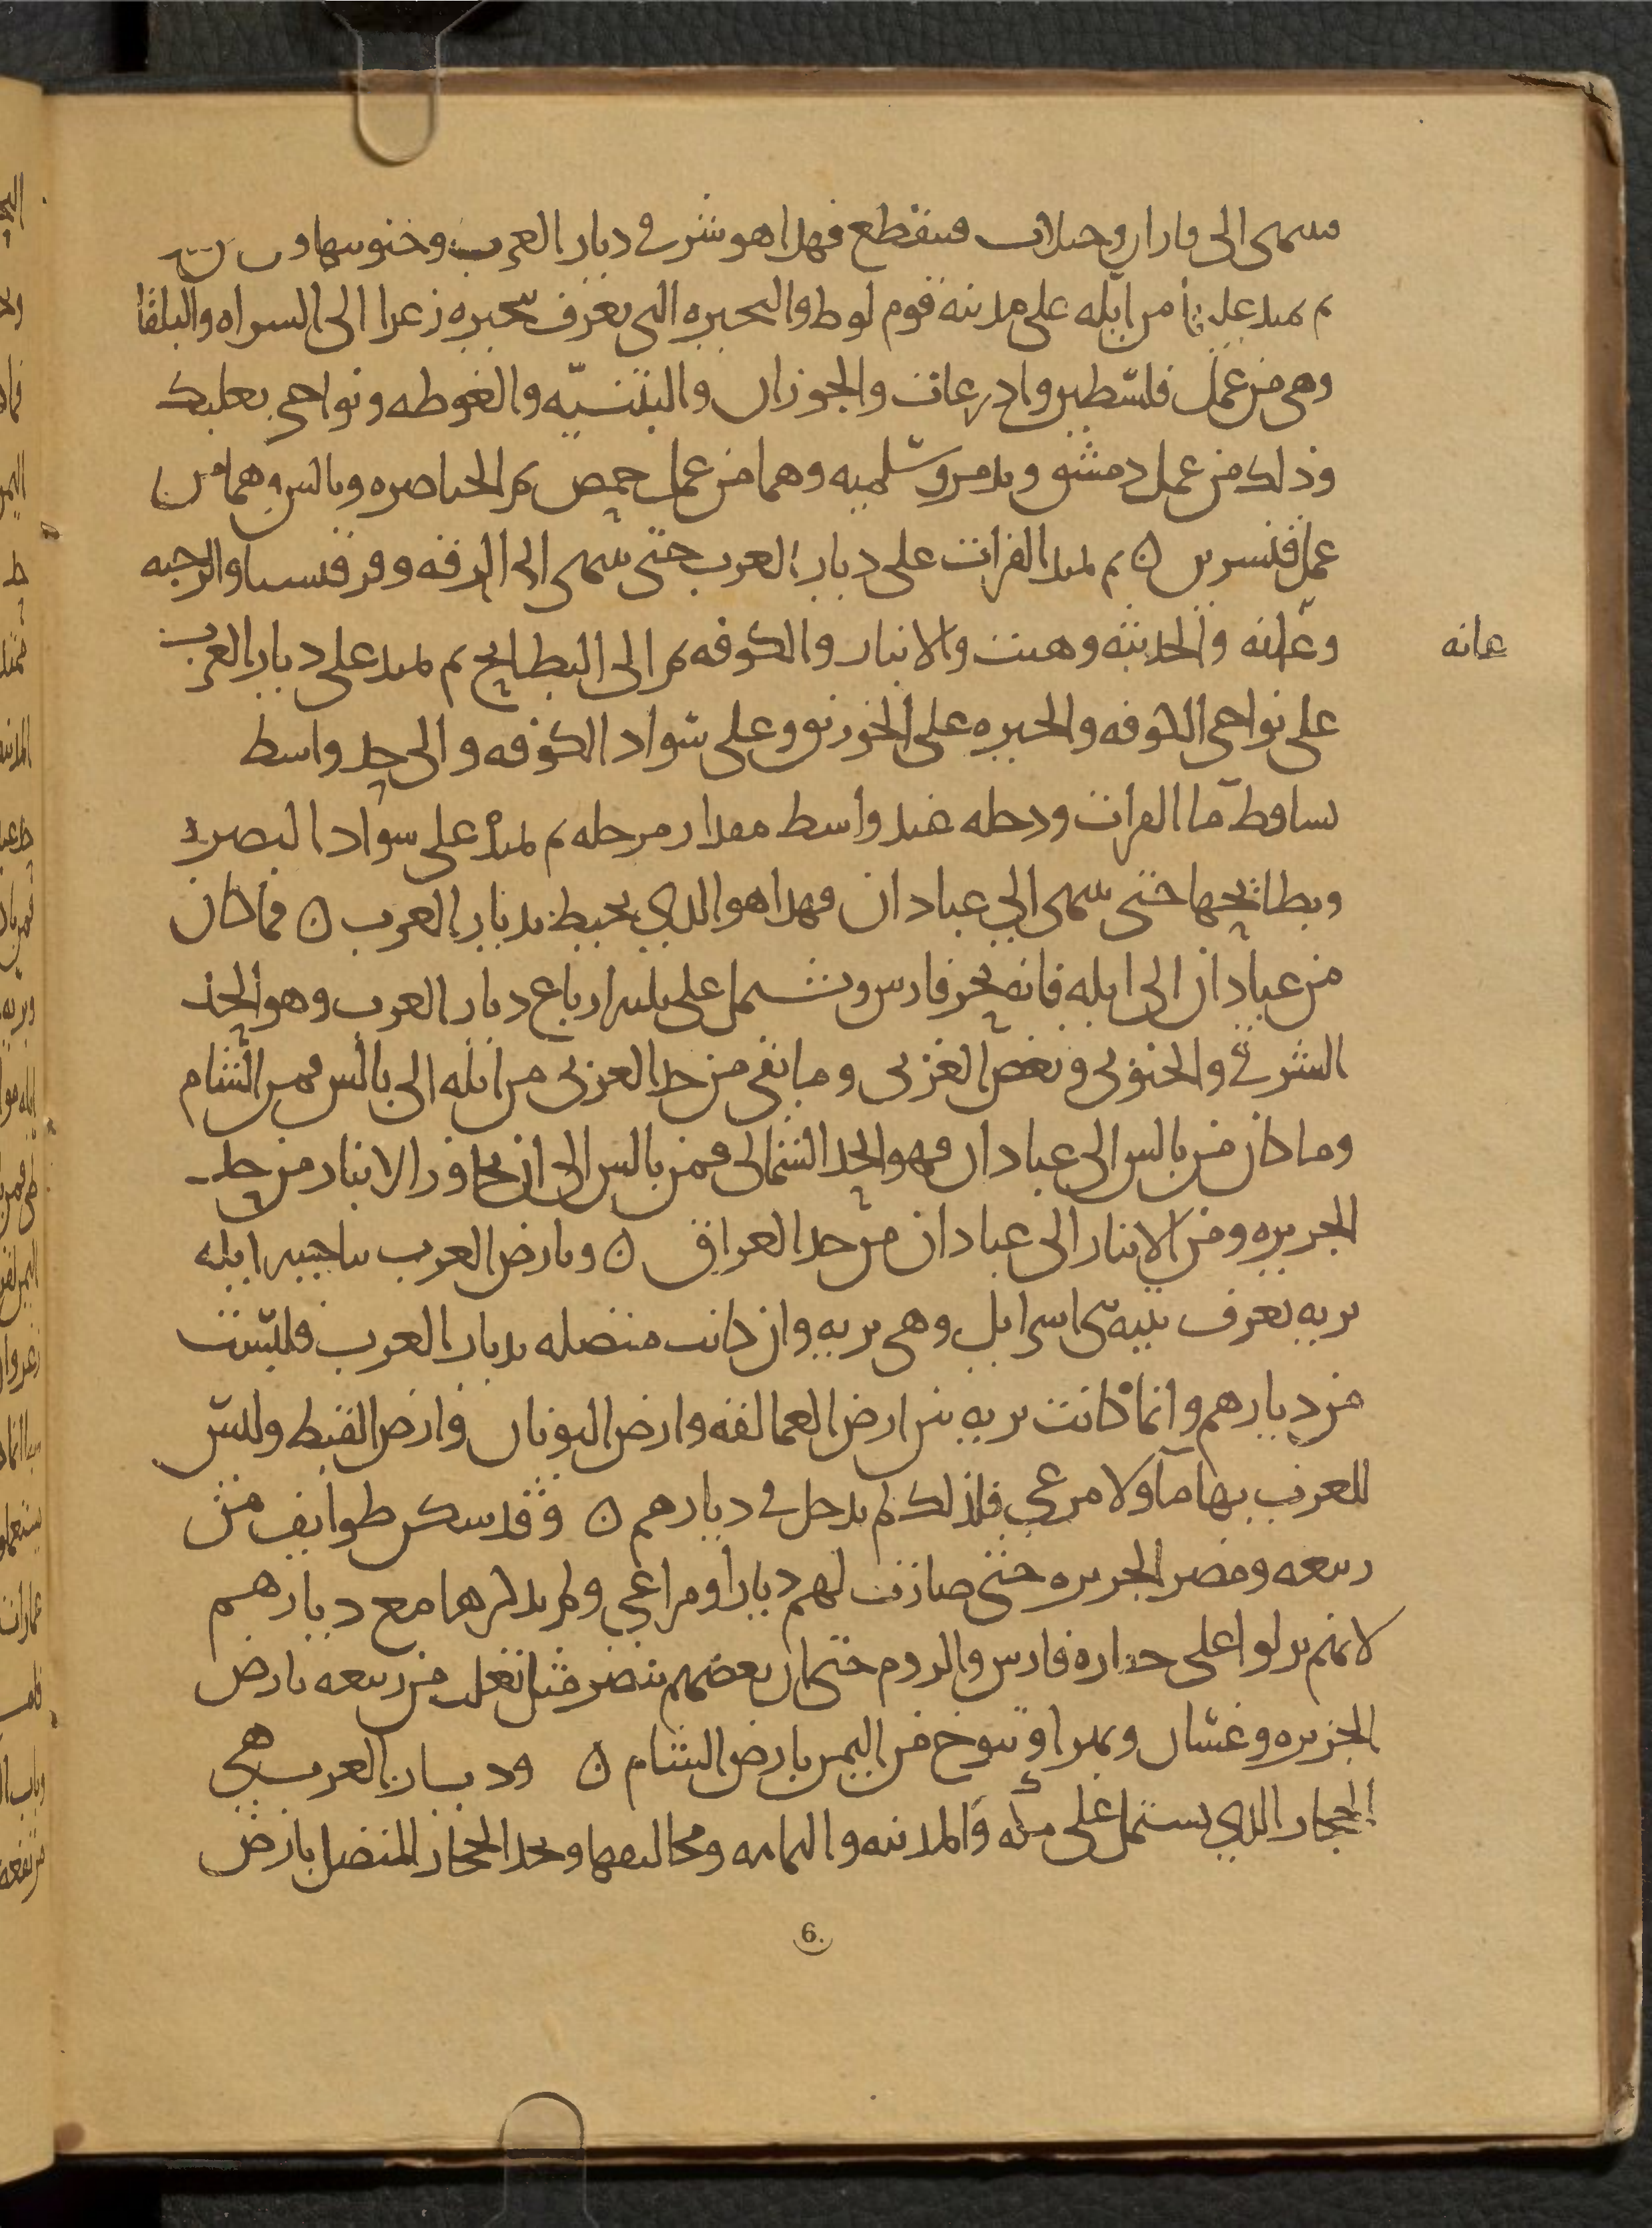 فينتهى الى فاران وجبلان فينقطع فهدا هو شرقي ديار العرب وجنوبيها و
ثم يمتد عليها من ايله على مدينه قوم لوط والبحيره التى تعرف ببحيره زعرا الى السراه والبلقا
وهى من عمل فلسطين وادرعات والجوزان والبثنيّه والغوطه ونواحى بعلبك
وذلك من عمل دمشق وتدمر وسلميه وهما من عمل حمص ثم الخناصره وبالس وهما من
عمل قنسرين ن ثم يمتد الفرات على ديار العرب حتى ينتهى الى الرقه وقرقيسيا والرحبه
وعانه والحديثه وهيت والانبار والكوفه ثم الى البطايح ثم يمتد على ديار العرب
عانه
على نواحى الكوفه والحيره على الخورنق وعلى سواد الكوفه والى حد واسط
تساقط ما الفرات ودجله عند واسط مقدار مرحله ثم يمتد على سواد البصره
وبطائحها حتى ينتهى الى عبادان فهدا هو الدي يحيط بديار العرب ن فما كان
من عبادان الى ايله فانه بحر فارس وتشتمل على ثلثه ارباع ديار العرب وهو الحد
الشرقي والجنوبى وبعض الغربى وما بقى من حد الغربى من ايله الى بالس فمن الشام
وما كان من بالس الى عبادان فهو الحد الشمالى فمن بالس الى ان تجاوز الانبار من حد
الجزيره ومن الانبار الى عبادان من حد العراق ن وبارض العرب بناحيه ايله
بريه تعرف بتيه بنى اسرايل وهى بريه وان كانت متصله بديار العرب فليست
من ديارهم وانما كانت بريه بين ارض العمالقه وارض اليونان وارض القبط وليس
للعرب بها مآ ولا مرعي فلذلك لم يدخل في ديارهم ن وقد سكن طوايف من
ربيعه ومضر الجزيره حتى صارت لهم ديارا ومراعي ولم يذكرها مع ديارهم
لانهم نزلوا على خفاره فارس والروم حتى ان بعضهم تنصر مثل تغلب من ربيعه بارض
الجزيره وغسان وبهرا وتنوخ من اليمن بارض الشام ن وديار العرب هي
الحجاز الدي يشتمل على مكه والمدينه واليمامه ومخاليفها ونجد الحجاز المتصل بارض
6.